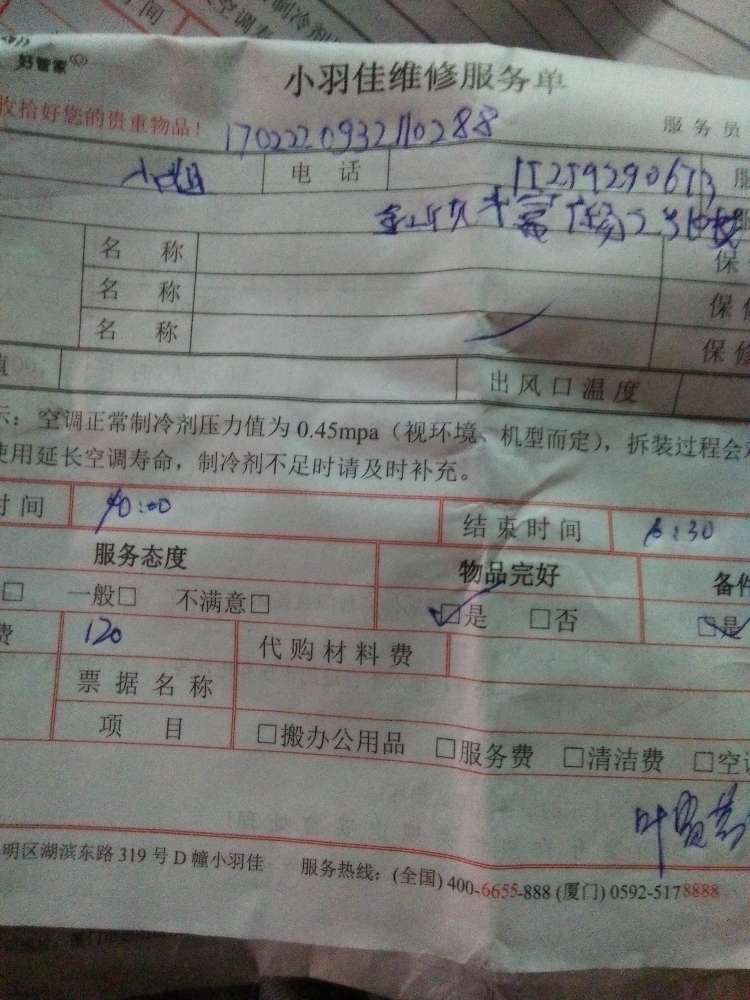 好管家
小羽佳维修服务单
收拾好您的贵重物品!
1702220932110288
服务员
电话 15259290673
名称 保
名称 保修
名称 保修
值 出风口温度
示:空调正常制冷剂压力值为 0.45mpa(视环境、机型而定),拆装过程会
使用延长空调寿命,制冷剂不足时请及时补充。
时间 10:00 结束时间 6:30
服务态度 物品完好 备件
□ 一般□ 不满意□ □是 □否 □是
费 120 代购材料费
票据名称
项目 □搬办公用品 □服务费 □清洁费 □空调
明区湖滨东路 319 号 D 幢小羽佳 服务热线:(全国) 400-6655-888 (厦门) 0592-5178888